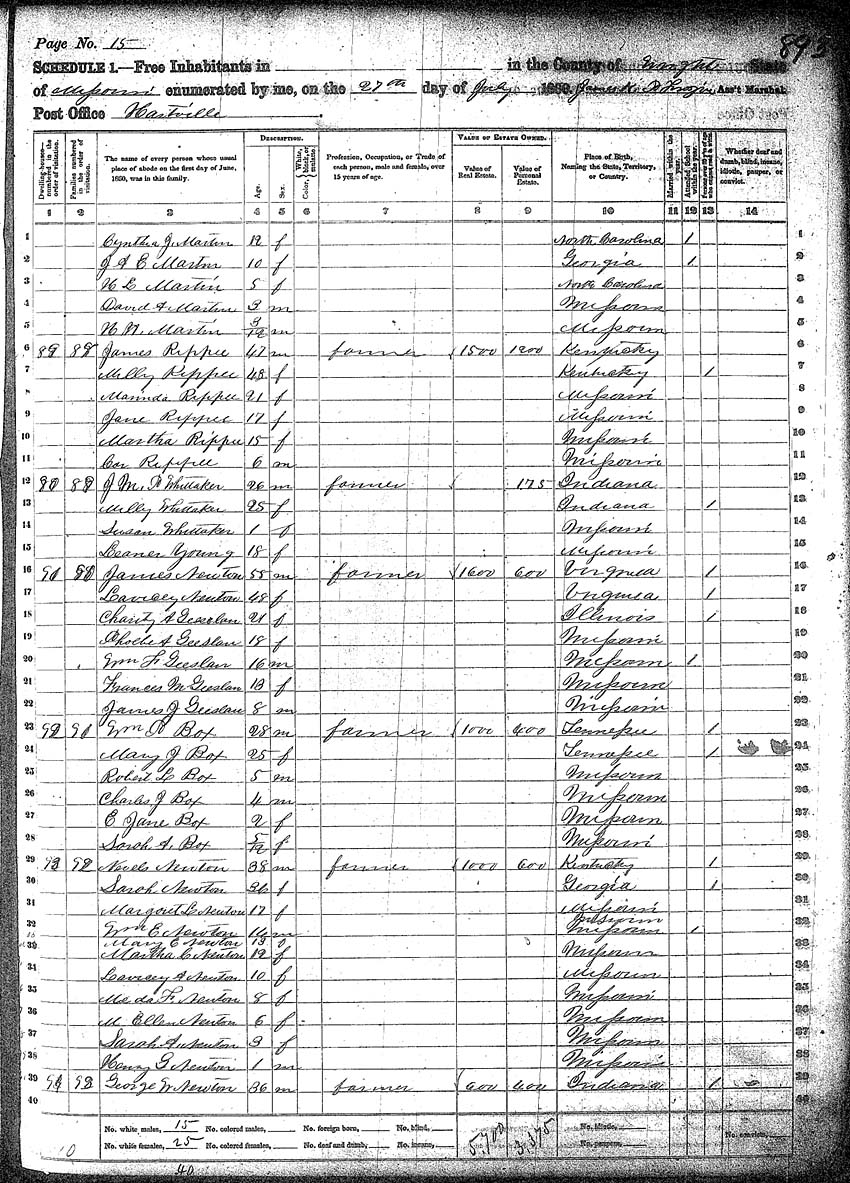 Page No. 15
SCHEDULE 1.—Free Inhabitants in in the County of Wright State
of Missouri enumerated by me, on the 27th day of July 1860. Ass't Marshal.
Post Office Hartville
Dwelling-houses—numbered in the order of visitation. Families numbered in the order of visitation. The name of every person whose usual place of abode on the first day of June, 1860, was in this family. DESCRIPTION. Age. Sex. Color, White, black, or mulatto. Profession, Occupation, or Trade of each person, male and female, over 15 years of age. VALUE OF ESTATE OWNED. Value of Real Estate. Value of Personal Estate. Place of Birth, Naming the State, Territory, or Country. Married within the year. Attended School within the year. Whether deaf and dumb, blind, insane, idiotic, pauper, or convict.
1 2 3 4 5 6 7 8 9 10 11 12 13 14
1 Cynthia J. Martin 12 f North Carolina 1 1
2 J A E Martin 10 f Georgia 1 2
3 Martin 5 f North Carolina 3
4 David A Martin 3 m Missouri 4
5 Martin 3/12 m Missouri 5
6 89 88 James Rippee 47 m farmer 1500 1200 Kentucky 6
7 Milly Rippee 48 f Kentucky 1 7
8 Marinda Rippee 21 f Missouri 8
9 Jane Rippee 17 f Missouri 9
10 Martha Rippee 15 f Missouri 10
11 Rippee 6 m Missouri 11
12 90 89 J M. Whittaker 26 m farmer 175 Indiana 12
13 Milly Whittaker 25 f Indiana 1 13
14 Susan Whittaker 1 f Missouri 14
15 Leaner Young 18 f Missouri 15
16 91 90 James Newton 55 m farmer 1600 600 Virginia 1 16
17 Lavicey Newton 48 f Virginia 1 17
18 Charity A Geeslan 21 f Illinois 1 18
19 Geeslan 18 f Missouri 19
20 Wm F Geeslan 16 m Missouri 1 20
21 Francis M Geeslan 13 f Missouri 21
22 James J Geeslan 8 m Missouri 22
23 92 91 Wm Box 28 m farmer 1000 400 Tennessee 1 23
24 Mary J Box 25 f Tennessee 1 24
25 Robert L Box 5 m Missouri 25
26 Charles J Box 4 m Missouri 26
27 E Jane Box 2 f Missouri 27
28 Sarah A. Box 5/12 f Missouri 28
29 93 92 Nevels Newton 38 m farmer 1000 600 Kentucky 1 29
30 Sarah Newton 36 f Georgia 1 30
31 Margaret L Newton 17 f Missouri 31
32 Wm E Newton 14 m Missouri 1 32
Mary E Newton 13 Missouri
33 Martha C Newton 12 f Missouri 33
34 Lavicey A Newton 10 f Missouri 34
35 F. Newton 8 f Missouri 35
36 M. Ellen Newton 6 f Missouri 36
37 Sarah A. Newton 3 f Missouri 37
38 Henry G Newton 1 m Missouri 38
39 94 93 George W Newton 36 m farmer 600 600 Indiana 1 39
40 40
No. white males, 15 No. colored males, No. foreign born, No. blind, 5,700 3,375 No. idiotic, No. convict,
No. white females, 25 No. colored females, No. deaf and dumb, No. insane, No. paupers,
40